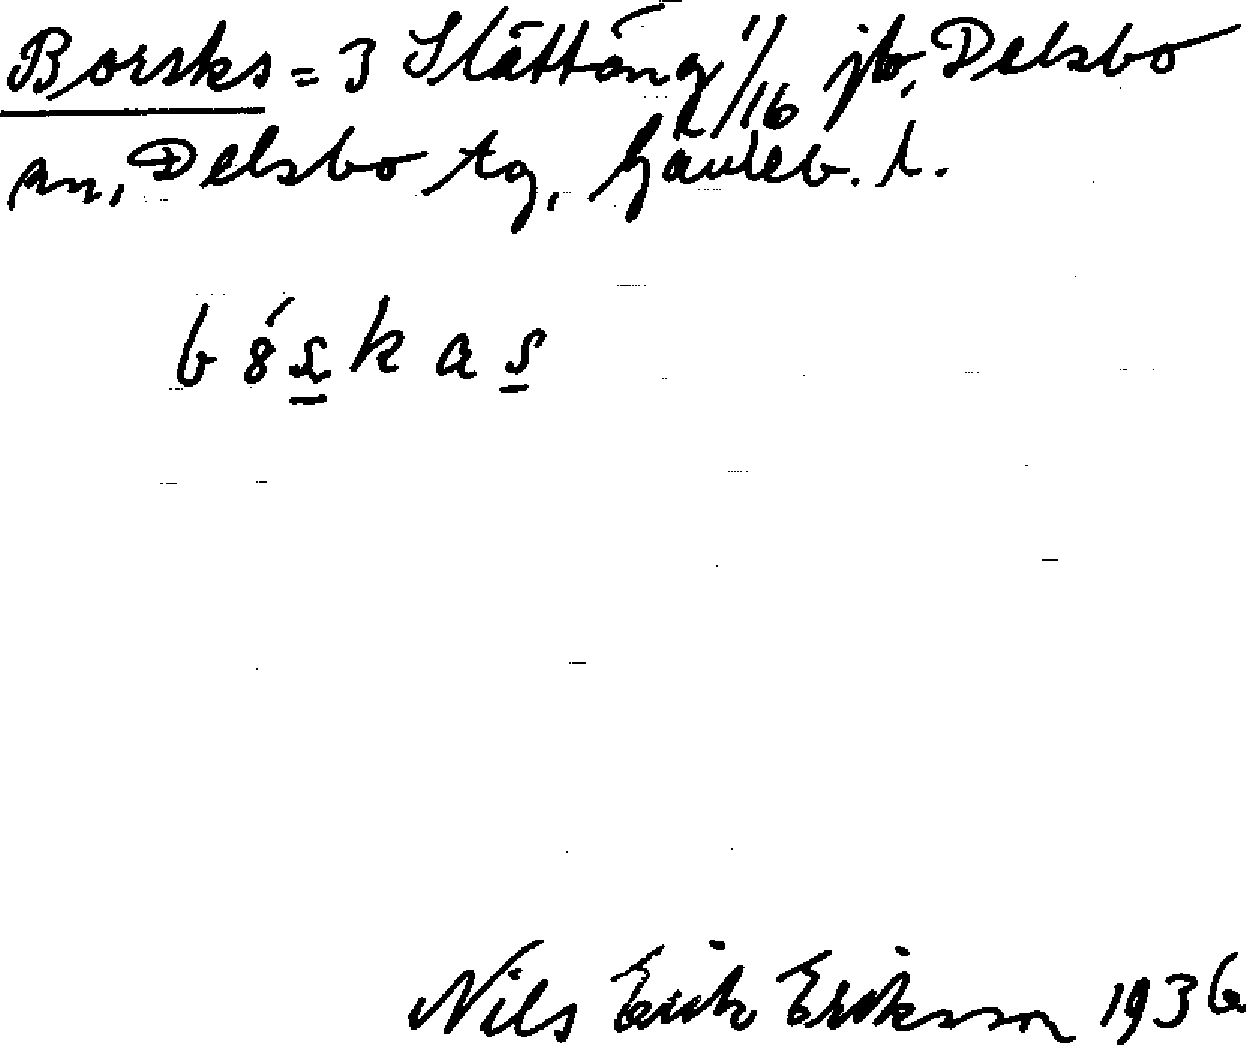 Borsks = 3 Slättäng 1/16 jb, Delsbo
sn, Delsbo tg, Gävleb. l.
b8́skas
Nils Erik Eriksson 1936